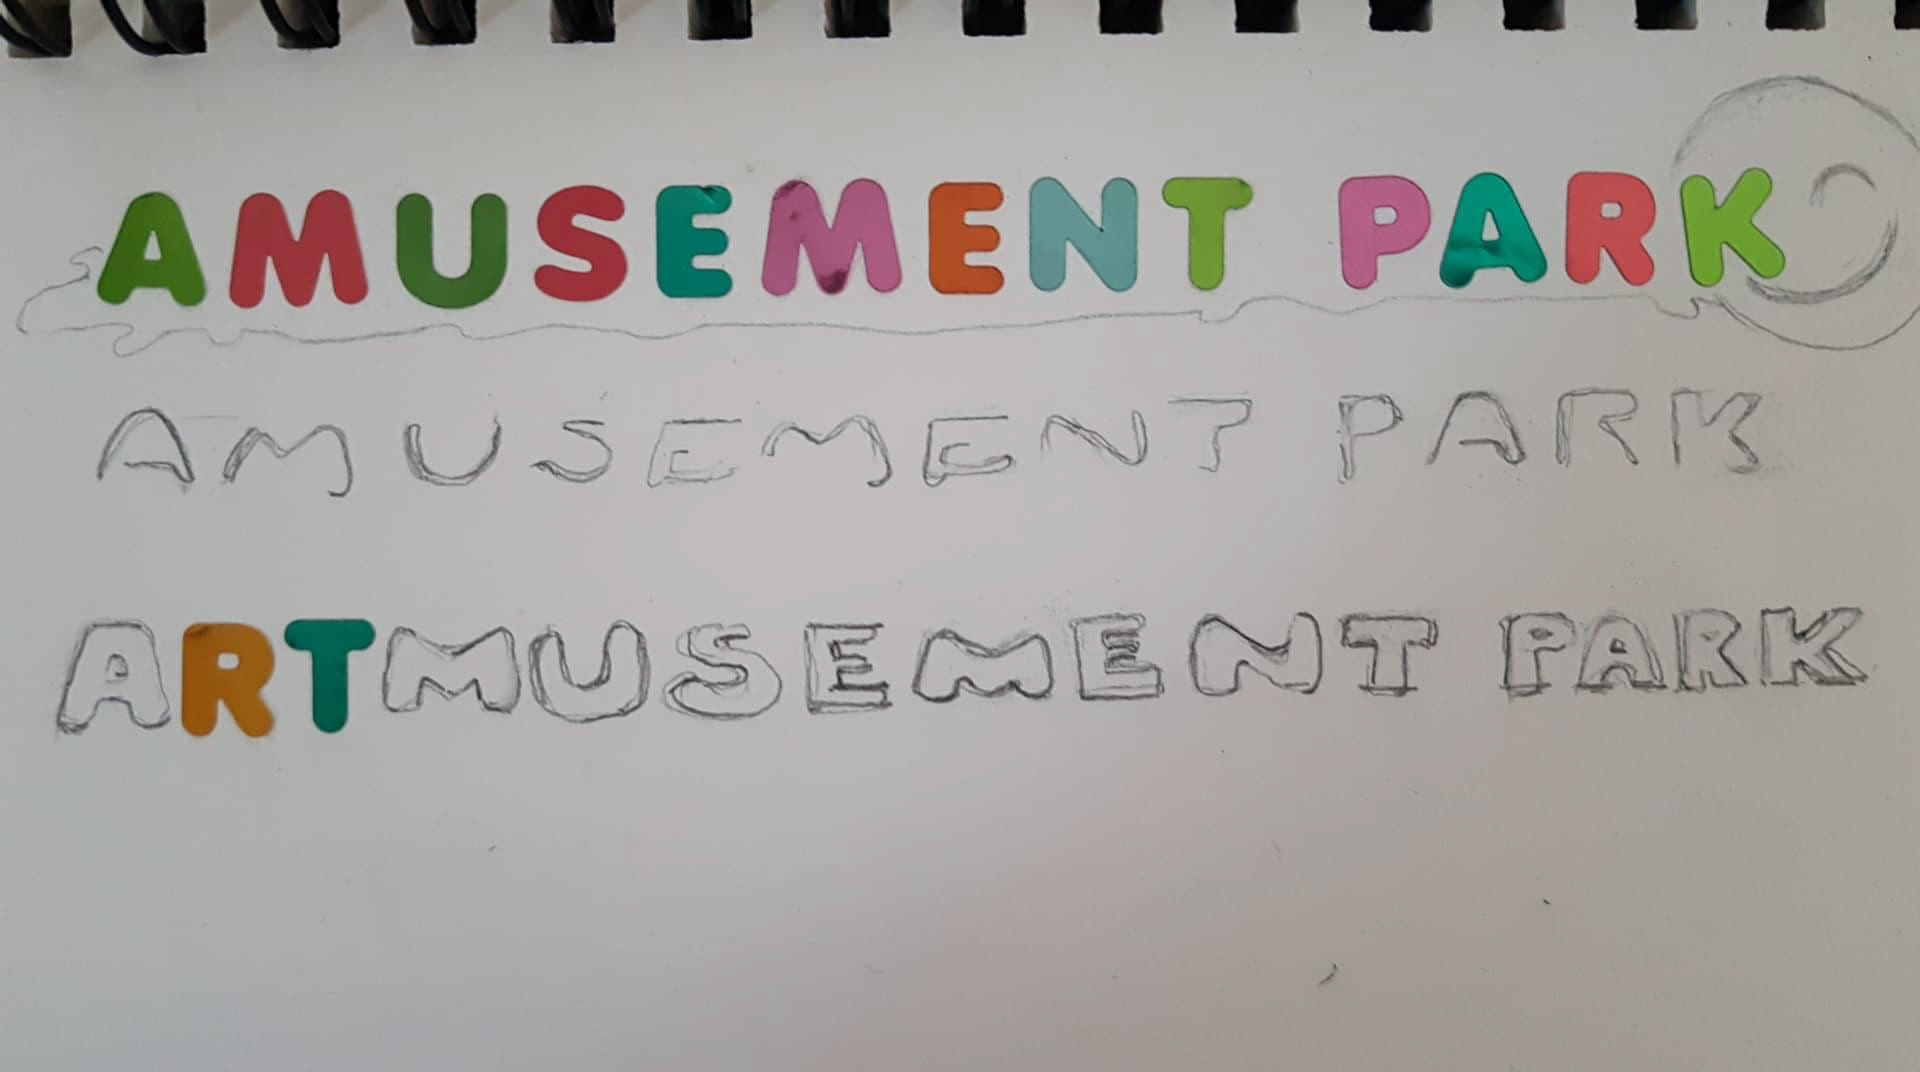 AMUSEMENT PARK
AMUSEMENT PARK
ARTMUSEMENT PARK